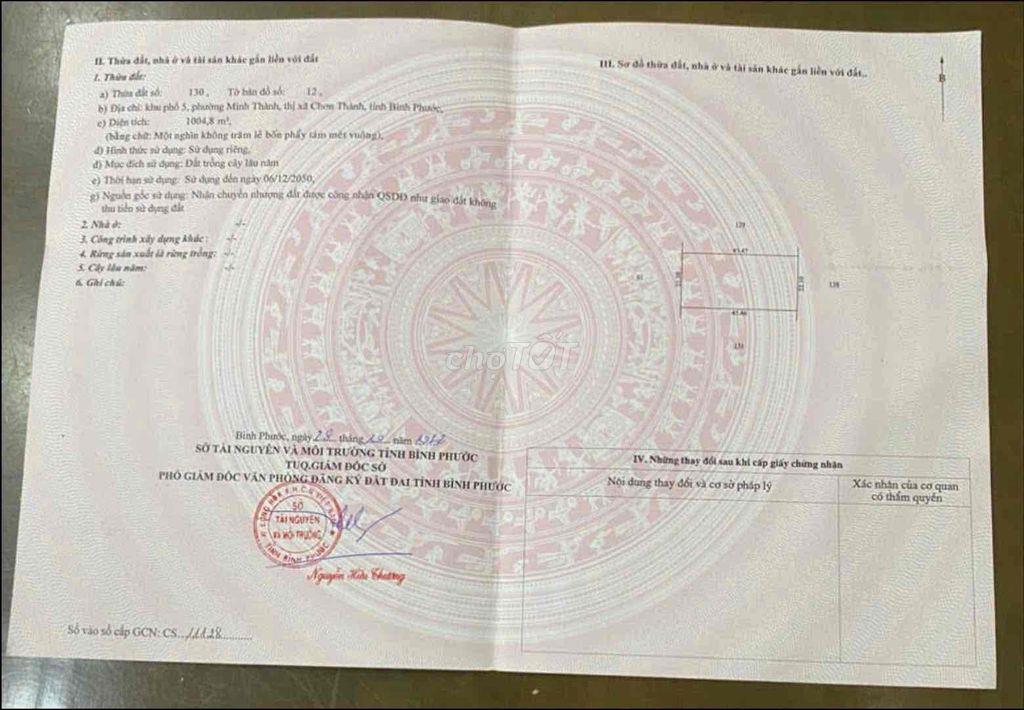 II. Thửa đất, nhà ở và tài sản khác gắn liền với đất
1. Thửa đất:
a) Thửa đất số: 130, Tờ bản đồ số: 12,
b) Địa chỉ: khu phố 5, phường Minh Thành, thị xã Chơn Thành, tỉnh Bình Phước,
c) Diện tích: 1004,8 m²,
(bằng chữ: Một nghìn không trăm lẻ bốn phẩy tám mét vuông),
d) Hình thức sử dụng: Sử dụng riêng,
đ) Mục đích sử dụng: Đất trồng cây lâu năm
e) Thời hạn sử dụng: Sử dụng đến ngày 06/12/2050,
g) Nguồn gốc sử dụng: Nhận chuyển nhượng đất được công nhận QSDĐ như giao đất không
thu tiền sử dụng đất
2. Nhà ở: -/-
3. Công trình xây dựng khác: -/-
4. Rừng sản xuất là rừng trồng: -/-
5. Cây lâu năm: -/-
6. Ghi chú:
Bình Phước, ngày 28 tháng 10 năm
SỞ TÀI NGUYÊN VÀ MÔI TRƯỜNG TỈNH BÌNH PHƯỚC
TUQ.GIÁM ĐỐC SỞ
PHÓ GIÁM ĐỐC VĂN PHÒNG ĐĂNG KÝ ĐẤT ĐAI TỈNH BÌNH PHƯỚC
SỞ
TÀI NGUYÊN
VÀ MÔI TRƯỜNG
TỈNH BÌNH PHƯỚC
Nguyễn Hữu
Số vào sổ cấp GCN: CS../11128
III. Sơ đồ thửa đất, nhà ở và tài sản khác gắn liền với đất..
B
129
138
131
choTỐT
IV. Những thay đổi sau khi cấp giấy chứng nhận
Nội dung thay đổi và cơ sở pháp lý
Xác nhận của cơ quan
có thẩm quyền